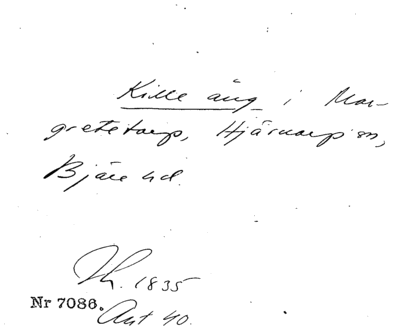 Kille äng i Mar-
gretetorp, Hjärnarp sn,
Bjäre hd.
Th. 1835
Nr 7086.
Ant 40.